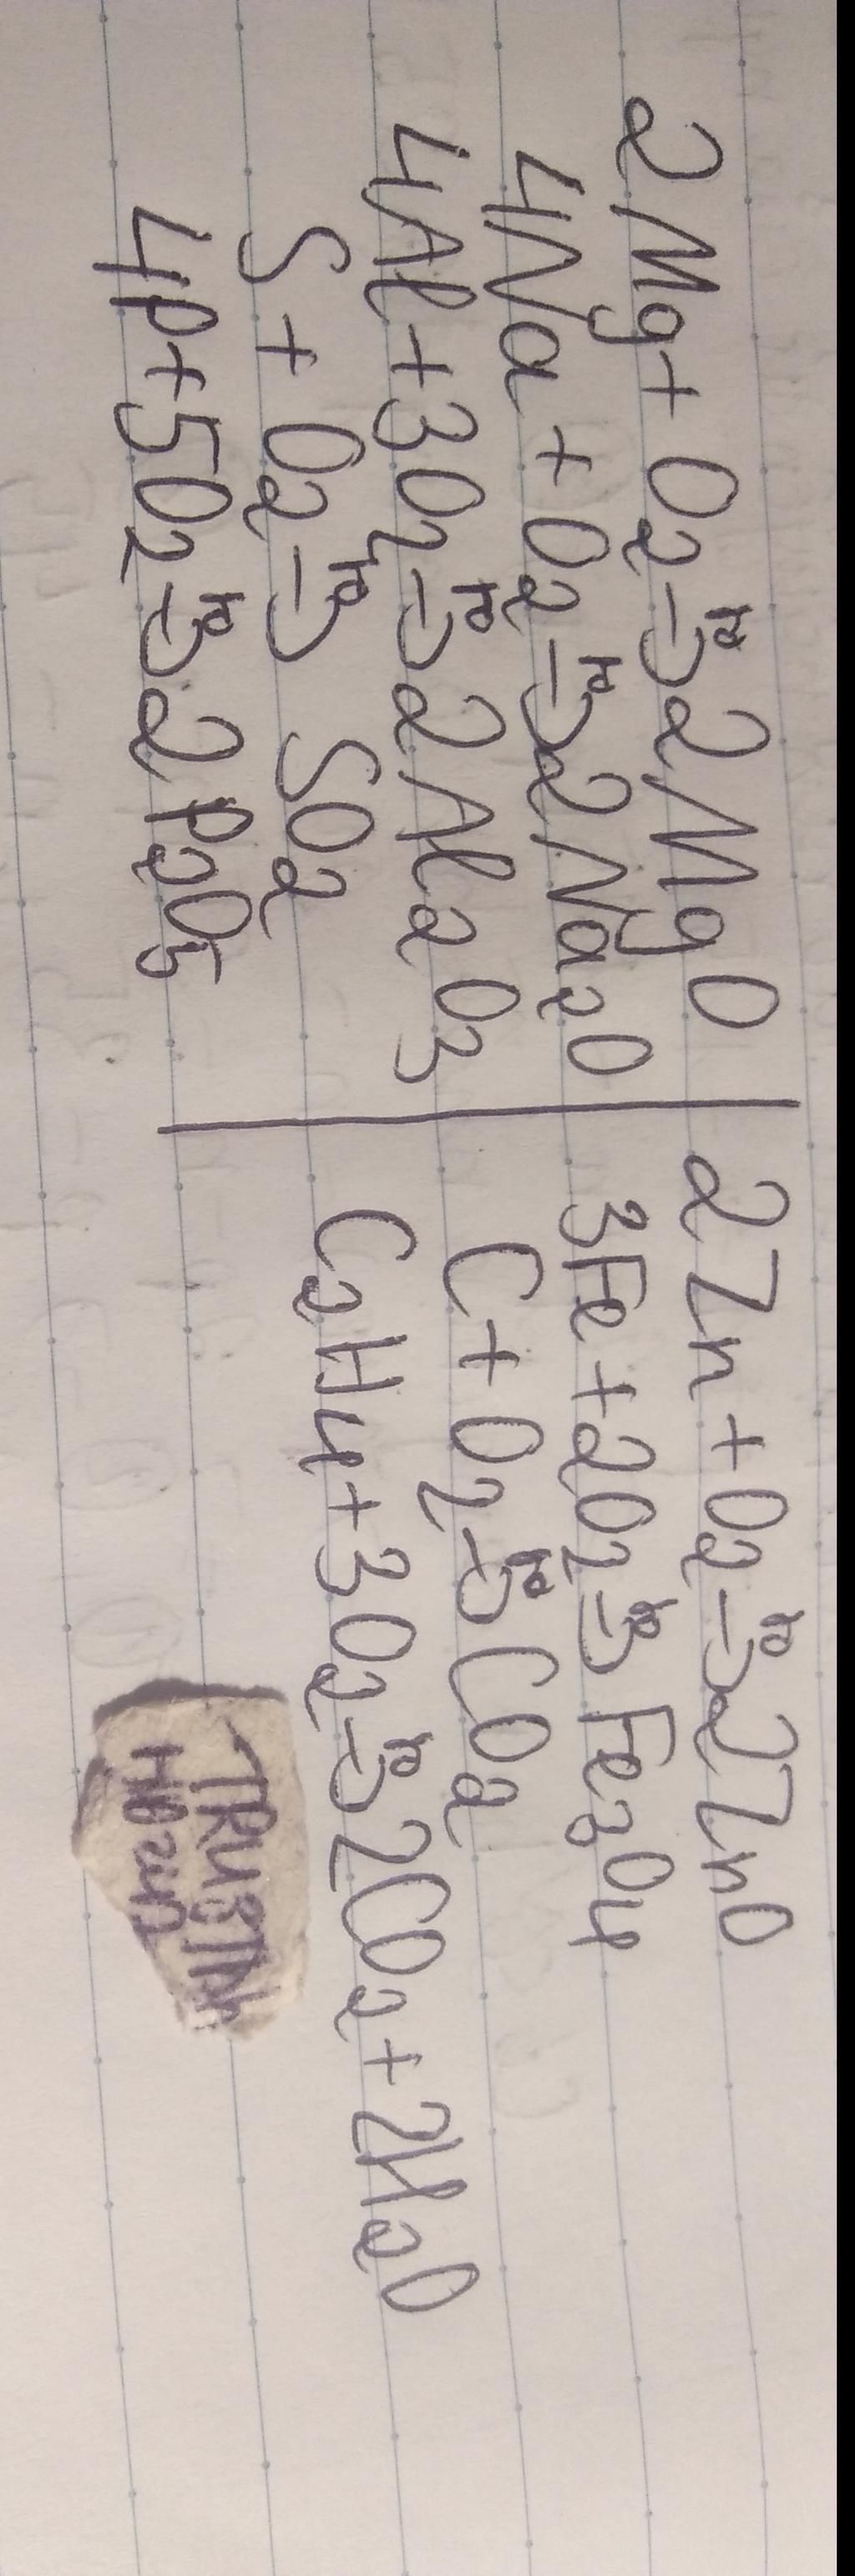 2Mg + O2 -to-> 2MgO
4Na + O2 -to-> 2Na2O
4Al + 3O2 -to-> 2Al2O3
S + O2 -to-> SO2
4P + 5O2 -to-> 2P2O5
2Zn + O2 -to-> 2ZnO
3Fe + 2O2 -to-> Fe3O4
C + O2 -to-> CO2
C2H4 + 3O2 -to-> 2CO2 + 2H2O